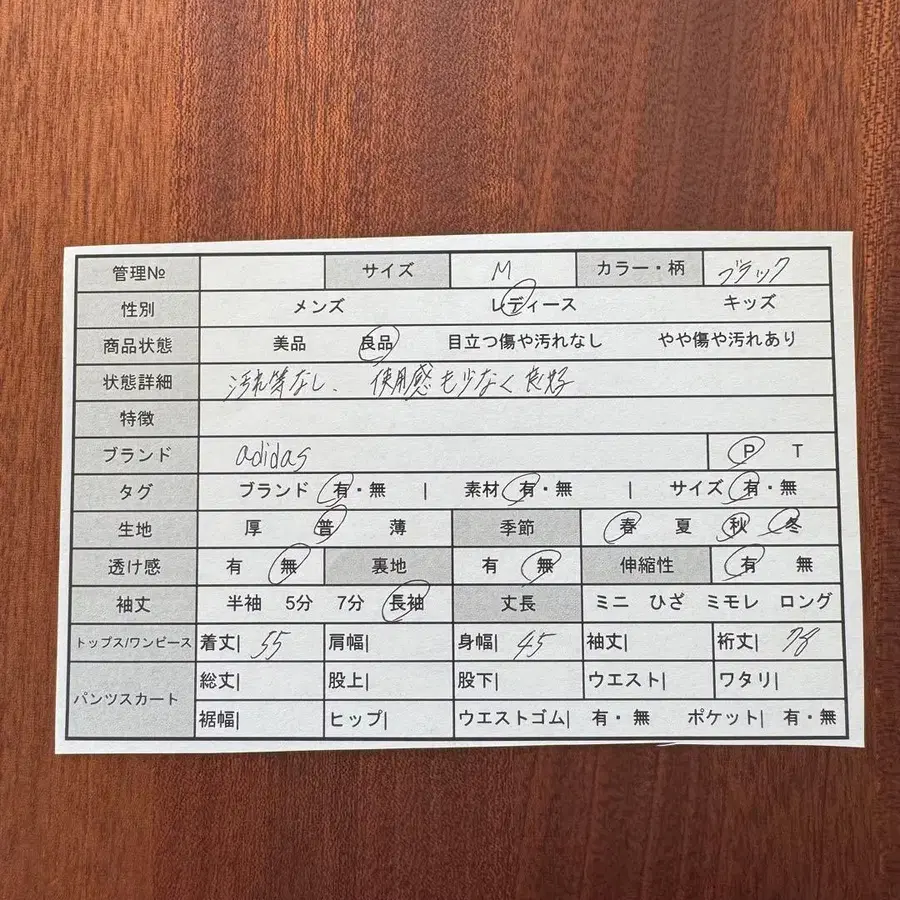 管理№ サイズ M カラー・柄 ブラック
性別 メンズ レディース キッズ
商品状態 美品 良品 目立つ傷や汚れなし やや傷や汚れあり
状態詳細 汚れ等なし、使用感も少なく良好
特徴
ブランド adidas P T
タグ ブランド 有・無 | 素材 有・無 | サイズ 有・無
生地 厚 普 薄 季節 春 夏 秋 冬
透け感 有 無 裏地 有 無 伸縮性 有 無
袖丈 半袖 5分 7分 長袖 丈長 ミニ ひざ ミモレ ロング
トップス/ワンピース 着丈| 55 肩幅| 身幅| 45 袖丈| 裄丈| 78
パンツスカート 総丈| 股上| 股下| ウエスト| ワタリ|
裾幅| ヒップ| ウエストゴム| 有・無 ポケット| 有・無